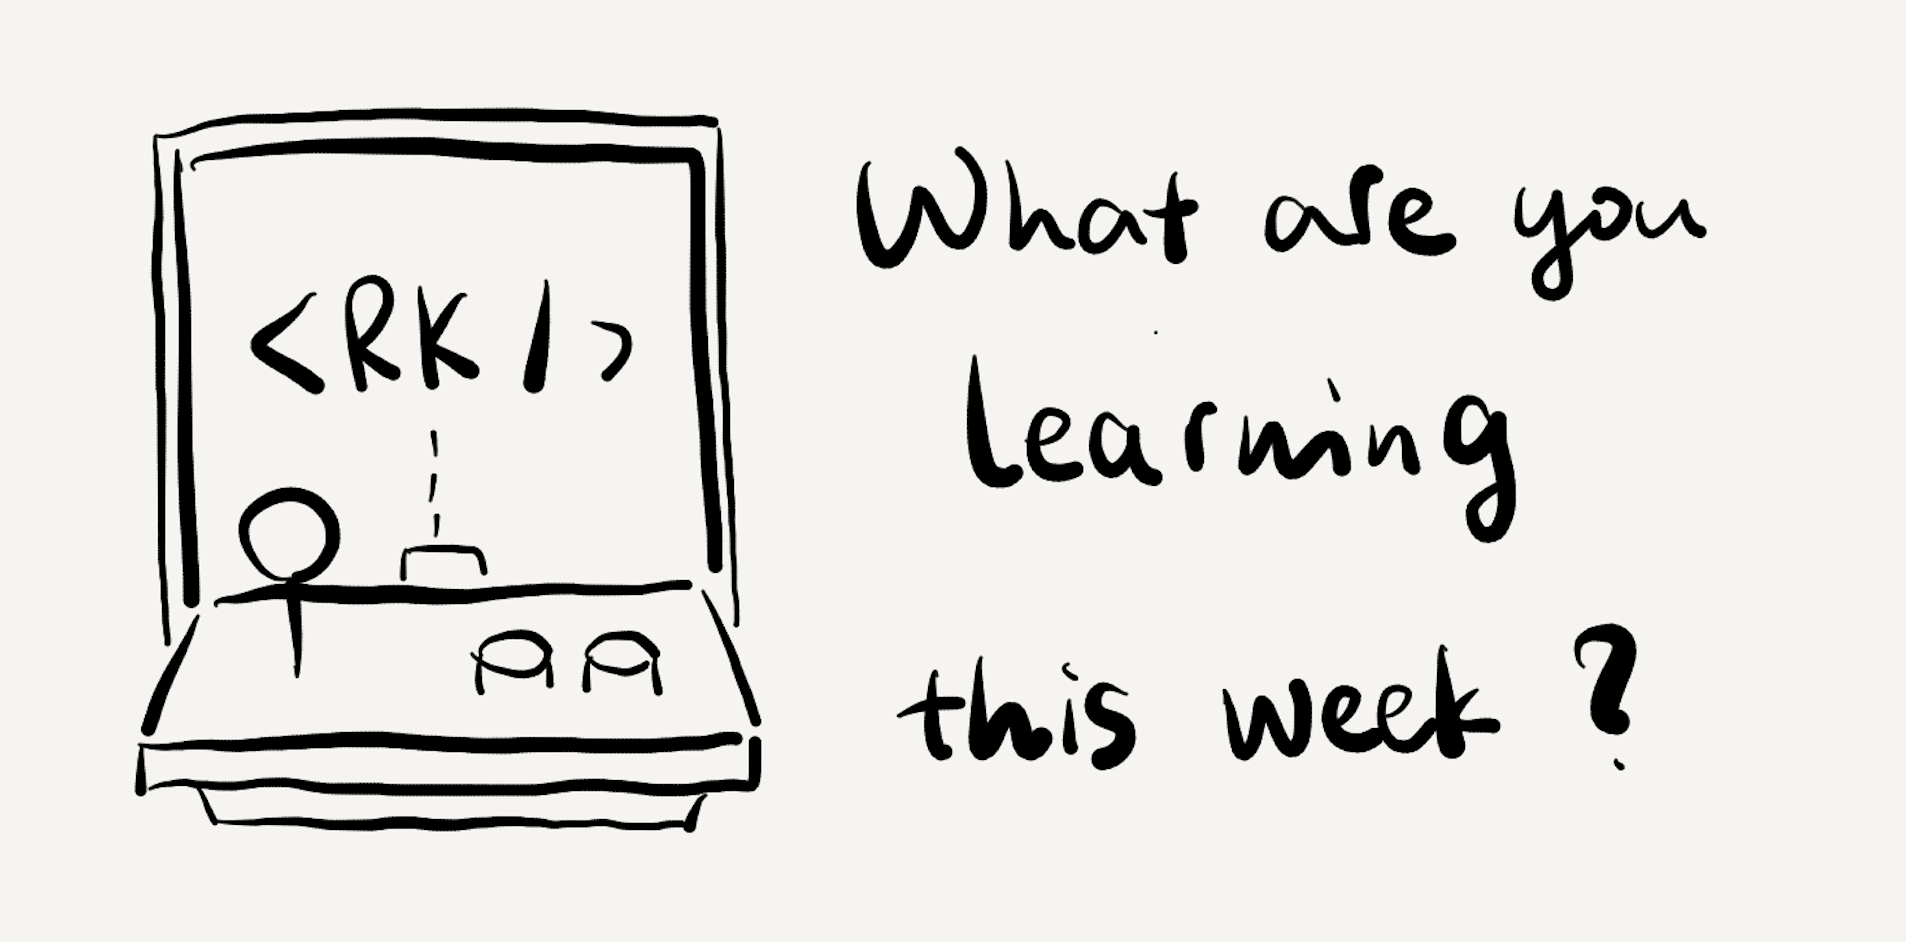 <RK/>
What are you
learning
this week?